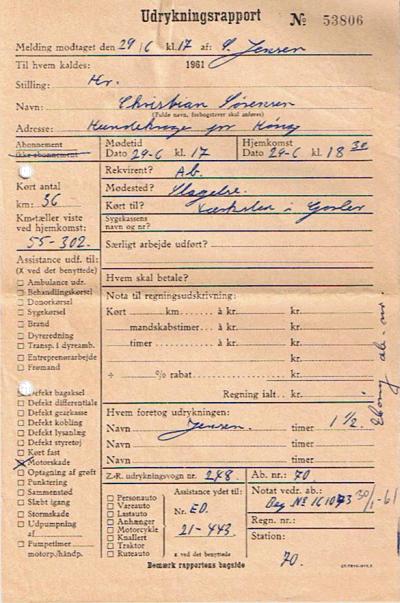 Udrykningsrapport № 53806
Melding modtaget den 29/6 kl. 17 af: S. Jensen
Til hvem kaldes: 1961
Stilling: Hr.
Navn: Christian Sørensen
(Fulde navn, forbogstaver skal anføres)
Adresse: pr Høng
Abonnement
ikke abonnement
Mødetid
Dato 29-6 kl. 17
Hjemkomst
Dato 29-6 kl. 18 30
Rekvirent? Ab.
Kørt antal
km: 36
Mødested? Slagelse.
Kørt til? i Gørlev
Km-tæller viste
ved hjemkomst:
55-302.
Sygekassens
navn og nr?
Særligt arbejde udført?
Assistance udf. til:
(X ved det benyttede)
Ambulance udr.
Behandlingskørsel
Donorkørsel
Sygekørsel
Brand
Dyreredning
Transp. i dyreamb.
Entreprenørarbejde
Fremand
Defekt bagaksel
Defekt differentiale
Defekt gearkasse
Defekt kobling
Defekt lysanlæg
Defekt styretøj
Kørt fast
Motorskade
Optagning af grøft
Punktering
Sammenstød
Slæbt igang
Stormskade
Udpumpning
af
Pumpetimer
motorp./håndp.
Hvem skal betale?
Nota til regningsudskrivning:
Kørt km. à kr. kr.
mandskabstimer à kr. kr.
timer à kr. kr.
kr.
÷ % rabat kr.
Regning ialt: kr.
Hvem foretog udrykningen:
Navn Jensen. timer 1 ½.
Navn timer
Navn timer
Z.-R. udrykningsvogn nr. 248.
Ab. nr.: 70
Personauto
Vareauto
Lastauto
Anhænger
Motorcykle
Knallert
Traktor
Ruteauto
Assistance ydet til:
Nr. ED.
21-443.
x ved det benyttede
Notat vedr. ab.:
30/1-61
Regn. nr.:
Station:
70.
Bemærk rapportens bagside